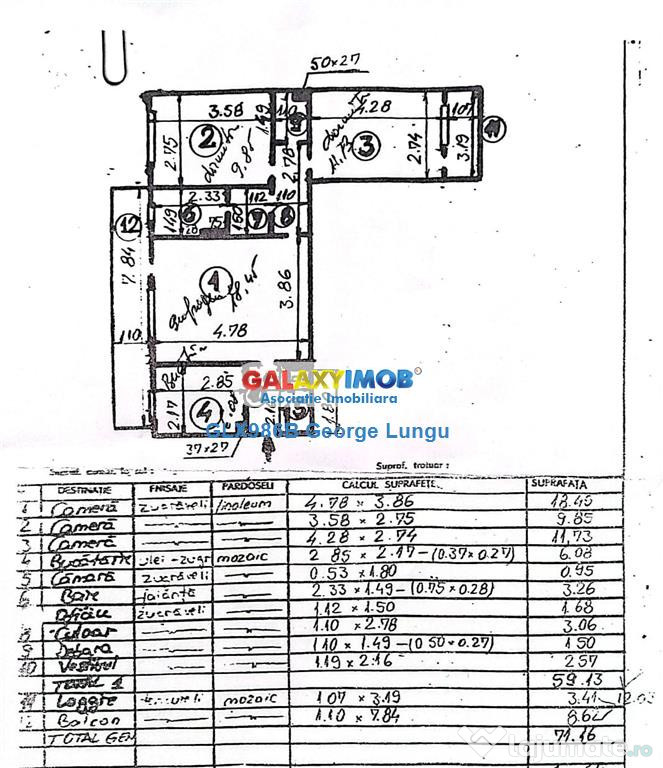 50×27
3.58
1.49
110
4.28
107
2
dormit
9.85
2.75
2.78
dormit
11.73
3
2.74
3.19
11
2.33
112
110
12
1.49
6
75
28
7
8
7.84
1
18.45
3.86
4.78
110
2.85
GALAXYIMOB
Asociatie Imobiliara
2.17
4
5
GLX986B George Lungu
37×27
Supraf. trotuar :
DESTINAȚIE FINISAJE PARDOSELI CALCUL SUPRAFEȚE SUPRAFAȚA
1 Cameră zugrăveli linoleum 4.78 × 3.86 18.45
2 Cameră 3.58 × 2.75 9.85
3 Cameră 4.28 × 2.74 11,73
4 Bucătărie ulei-zugr mozaic 2.85 × 2.17-(0.37×0.27) 6.08
5 Cămară zugrăveli 0.53 × 1.80 0.95
6 Baie faianță 2.33 × 1.49-(0.75×0.28) 3.26
Oficiu zugrăveli 1.12 × 1.50 1.68
8 Culoar 1.10 × 2.78 3.06
9 Debara 1.10 × 1.49-(0.50×0.27) 1.50
10 Vestibul 1.19 × 2.16 2.57
Total 1 59.13
11 Loggie zugrăveli mozaic 1.07 × 3.19 3.41 12.03
Balcon 1.10 × 7.84 8.62
TOTAL GEN 71.16
lajumate.ro